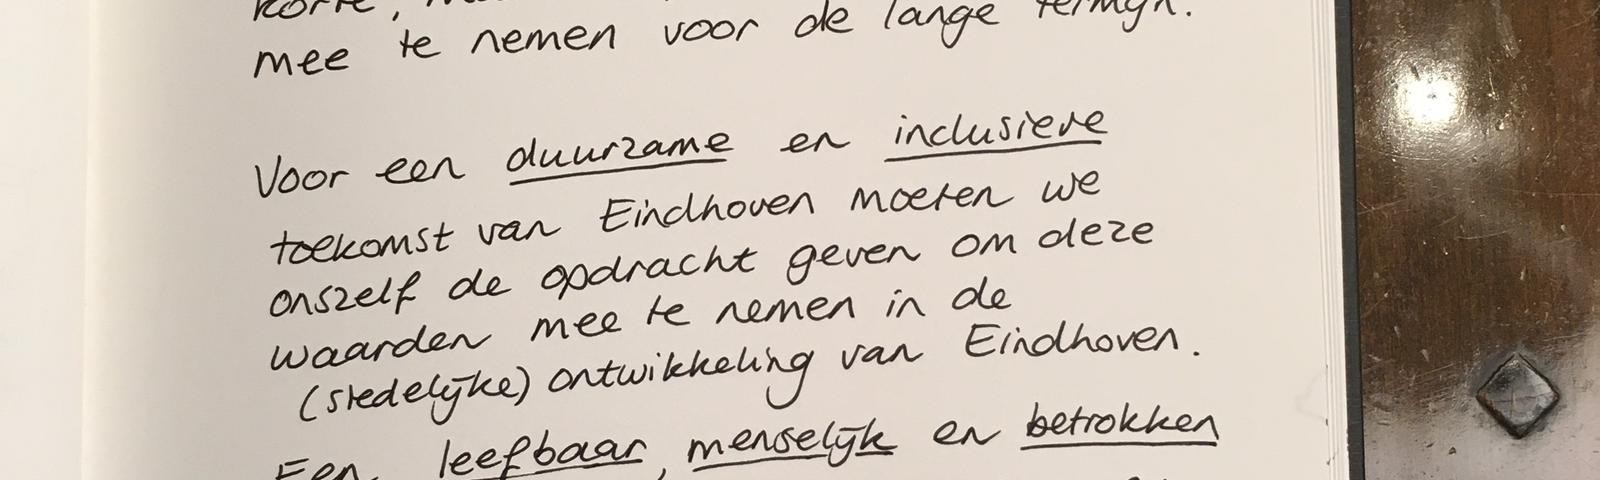 korte,
mee te nemen voor de lange termijn.
Voor een duurzame en inclusieve
toekomst van Eindhoven moeten we
onszelf de opdracht geven om deze
waarden mee te nemen in de
(stedelijke) ontwikkeling van Eindhoven.
Een leefbaar, menselijk en betrokken